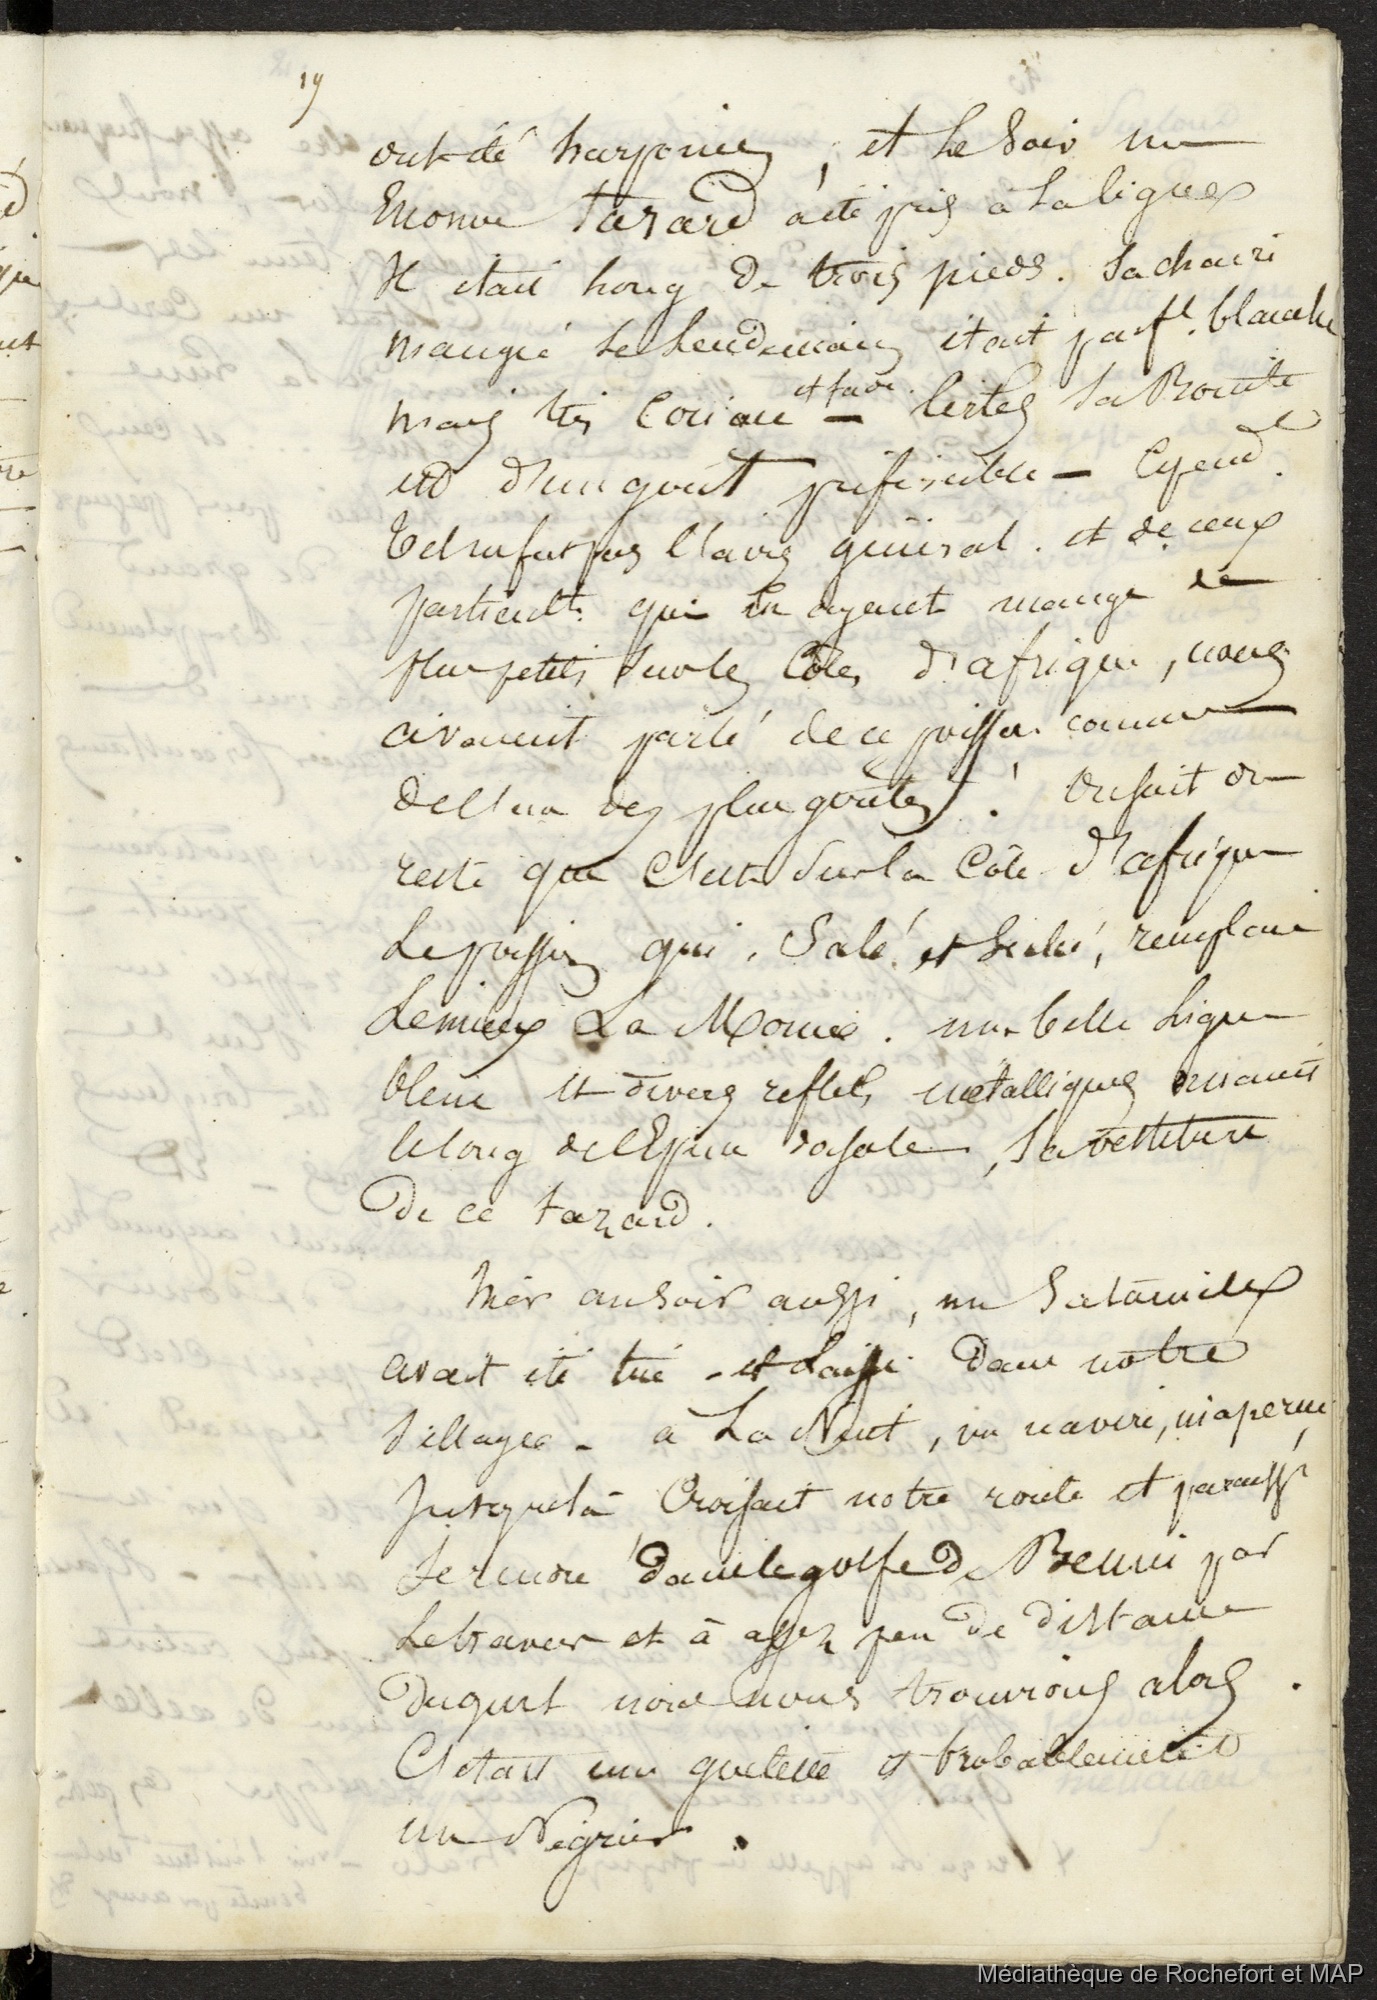 19
ont été harponnés, et le soir un
Enorme tazard a été pris à la ligne
Il était long de trois pieds. Sa chair
mangée le lendemain était parft. blanche
mais très coriace et fade. — certes la Bonite
est d'un goût préférible — Cepend.
tel ne fut pas l'avis général. et de ceux
particult. qui en ayant mangé de
plus petits sur les Côtes d'afrique, nous
avaient parlé de ce poisson comme
de l'un des plus goûtés. ! On sait du
reste que C'est sur la Côte d'afrique
le poisson qui, Salé et séché, remplace
le mieux La Morue. une belle ligne
bleue et divers reflets métalliques ornaient
le long de l'Epine dorsale, la vestiture
De ce tazard.
hier au soir aussi, un Satanicle
avait été tué - et laissé dans notre
sillage - à La Nuit, un navire, inaperçu
jusque là Croisait notre route et paraiss.
se rendre dans le golfe de Benin par
le travers et à assez peu de distance
duquel nous nous trouvions alors.
C'était une goelette et probablement
un Négrier.
Médiathèque de Rochefort et MAP